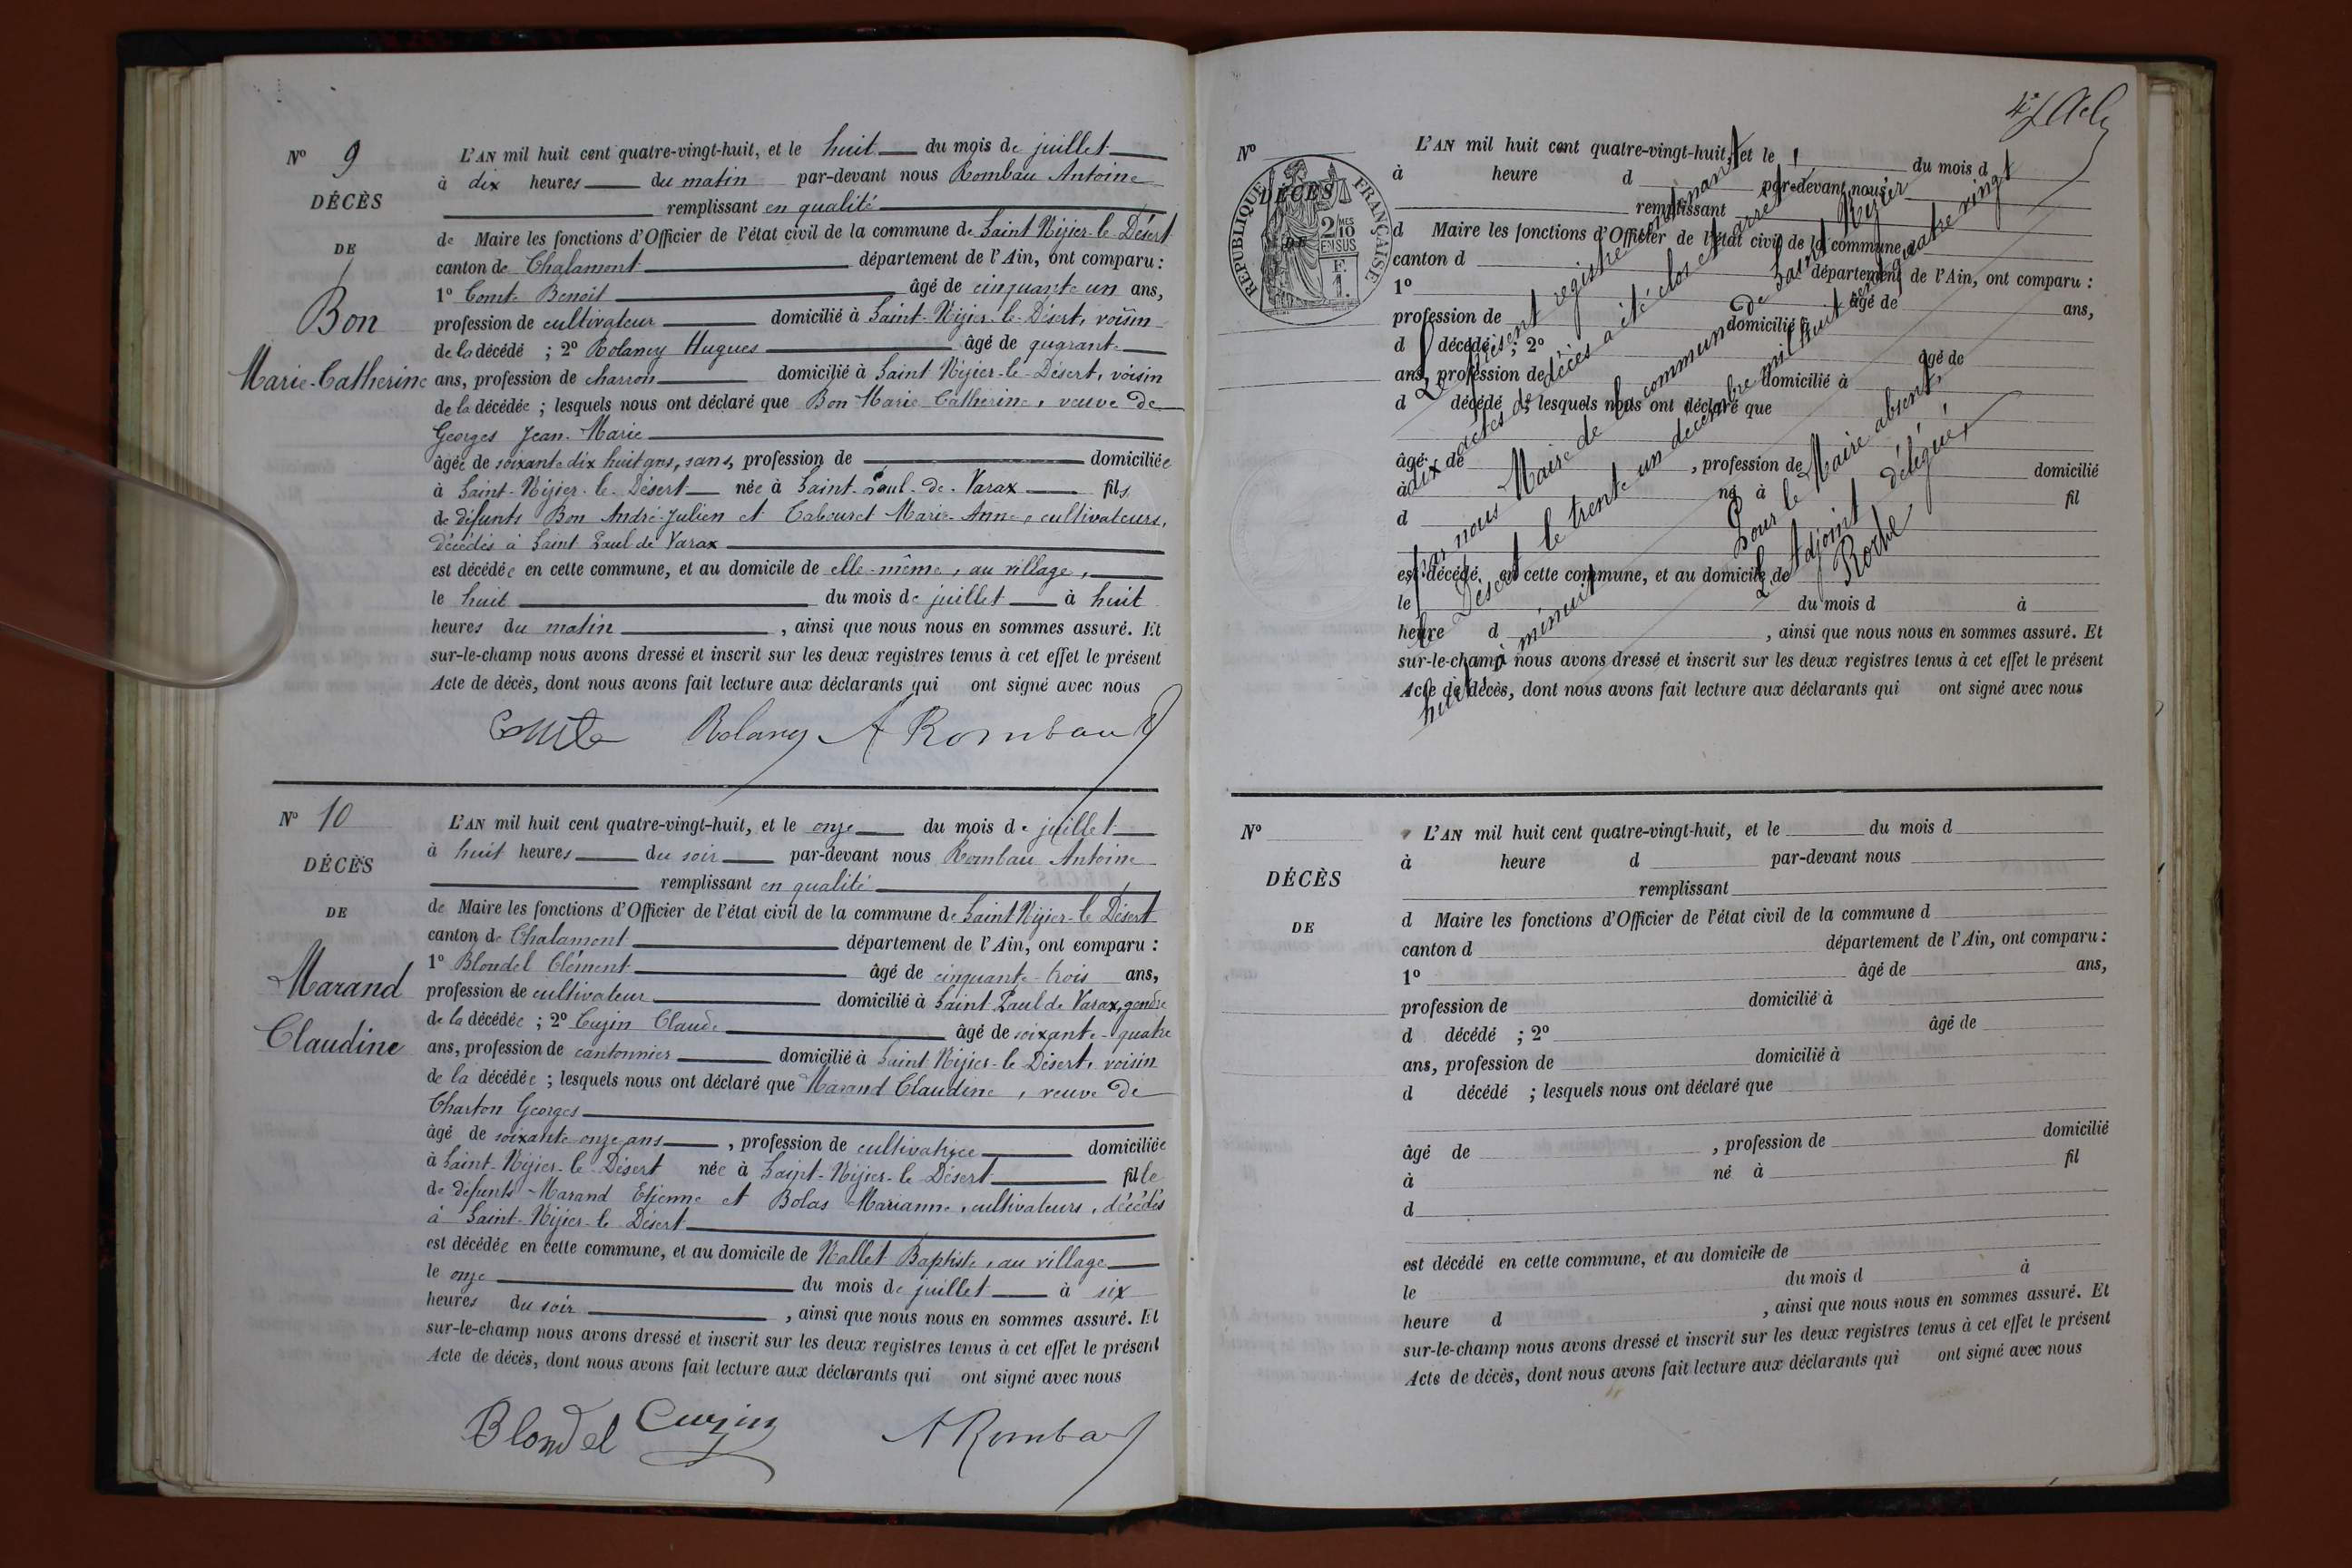 N° 9
DÉCÈS
DE
Bon
Marie-Catherine
L'AN mil huit cent quatre-vingt-huit, et le huit du mois de juillet
à dix heures du matin par-devant nous Rombau Antoine
remplissant en qualité
de Maire les fonctions d'Officier de l'état civil de la commune de Saint Nizier-le-Désert
canton de Chalamont département de l'Ain, ont comparu :
1° Comte Benoit âgé de cinquante un ans,
profession de cultivateur domicilié à Saint-Nizier-le-Désert, voisin
de la décédé ; 2° Rolancy Hugues âgé de quarante
ans, profession de charron domicilié à Saint Nizier-le-Désert, voisin
de la décédée ; lesquels nous ont déclaré que Bon Marie Catherine, veuve de
Georges Jean-Marie
âgée de soixante dix huit ans, sans, profession de domiciliée
à Saint-Nizier-le-Désert née à Saint-Paul-de-Varax fils
de défunts Bon André-Julien et Tabouret Marie-Anne, cultivateurs,
décédés à Saint Paul de Varax
est décédée en cette commune, et au domicile de elle-même, au village,
le huit du mois de juillet à huit
heures du matin , ainsi que nous nous en sommes assuré. Et
sur-le-champ nous avons dressé et inscrit sur les deux registres tenus à cet effet le présent
Acte de décès, dont nous avons fait lecture aux déclarants qui ont signé avec nous
Comte Rolancy A Rombau
N° 10
DÉCÈS
DE
Marand
Claudine
L'AN mil huit cent quatre-vingt-huit, et le onze du mois de juillet
à huit heures du soir par-devant nous Rombau Antoine
remplissant en qualité
de Maire les fonctions d'Officier de l'état civil de la commune de Saint Nizier-le Désert
canton de Chalamont département de l'Ain, ont comparu :
1° Blondel Clément âgé de cinquante-trois ans,
profession de cultivateur domicilié à Saint Paul de Varax, gendre
de la décédée ; 2° Cuzin Claude âgé de soixante-quatre
ans, profession de cantonnier domicilié à Saint Nizier-le Désert, voisin
de la décédée ; lesquels nous ont déclaré que Marand Claudine, veuve de
Charton Georges
âgé de soixante-onze ans , profession de cultivatrice domiciliée
à Saint-Nizier-le-Désert née à Saint-Nizier-le Désert fille
de défunts Marand Etienne et Bolas Marianne, cultivateurs, décédés
à Saint-Nizier-le Désert
est décédée en cette commune, et au domicile de Nallet Baptiste, au village
le onze du mois de juillet à six
heures du soir , ainsi que nous nous en sommes assuré. Et
sur-le-champ nous avons dressé et inscrit sur les deux registres tenus à cet effet le présent
Acte de décès, dont nous avons fait lecture aux déclarants qui ont signé avec nous
Blondel Cuzin A Rombau
N°
DÉCÈS
DE
RÉPUBLIQUE FRANÇAISE
2 MES
10
EN SUS
F.
1.
L'AN mil huit cent quatre-vingt-huit, et le du mois d
à heure d par-devant nous
remplissant
d Maire les fonctions d'Officier de l'état civil de la commune
canton d département de l'Ain, ont comparu :
1° âgé de ans,
profession de domicilié à
d décédé ; 2° âgé de
ans, profession de domicilié à
d décédé ; lesquels nous ont déclaré que
âgé de , profession de domicilié
à né à fil
d
est décédé en cette commune, et au domicile de
le du mois d à
heure d , ainsi que nous nous en sommes assuré. Et
sur-le-champ nous avons dressé et inscrit sur les deux registres tenus à cet effet le présent
Acte de décès, dont nous avons fait lecture aux déclarants qui ont signé avec nous
Le présent registre contenant
dix actes de décès a été clos et arrêté
par nous Maire de la commune de Saint Nizier
le Désert le trente un décembre mil huit cent quatre vingt
huit à minuit
Pour le Maire absent,
L'Adjoint délégué,
Roche
N°
DÉCÈS
DE
L'AN mil huit cent quatre-vingt-huit, et le du mois d
à heure d par-devant nous
remplissant
d Maire les fonctions d'Officier de l'état civil de la commune d
canton d département de l'Ain, ont comparu :
1° âgé de ans,
profession de domicilié à
d décédé ; 2° âgé de
ans, profession de domicilié à
d décédé ; lesquels nous ont déclaré que
âgé de , profession de domicilié
à né à fil
d
est décédé en cette commune, et au domicile de
le du mois d à
heure d , ainsi que nous nous en sommes assuré. Et
sur-le-champ nous avons dressé et inscrit sur les deux registres tenus à cet effet le présent
Acte de décès, dont nous avons fait lecture aux déclarants qui ont signé avec nous